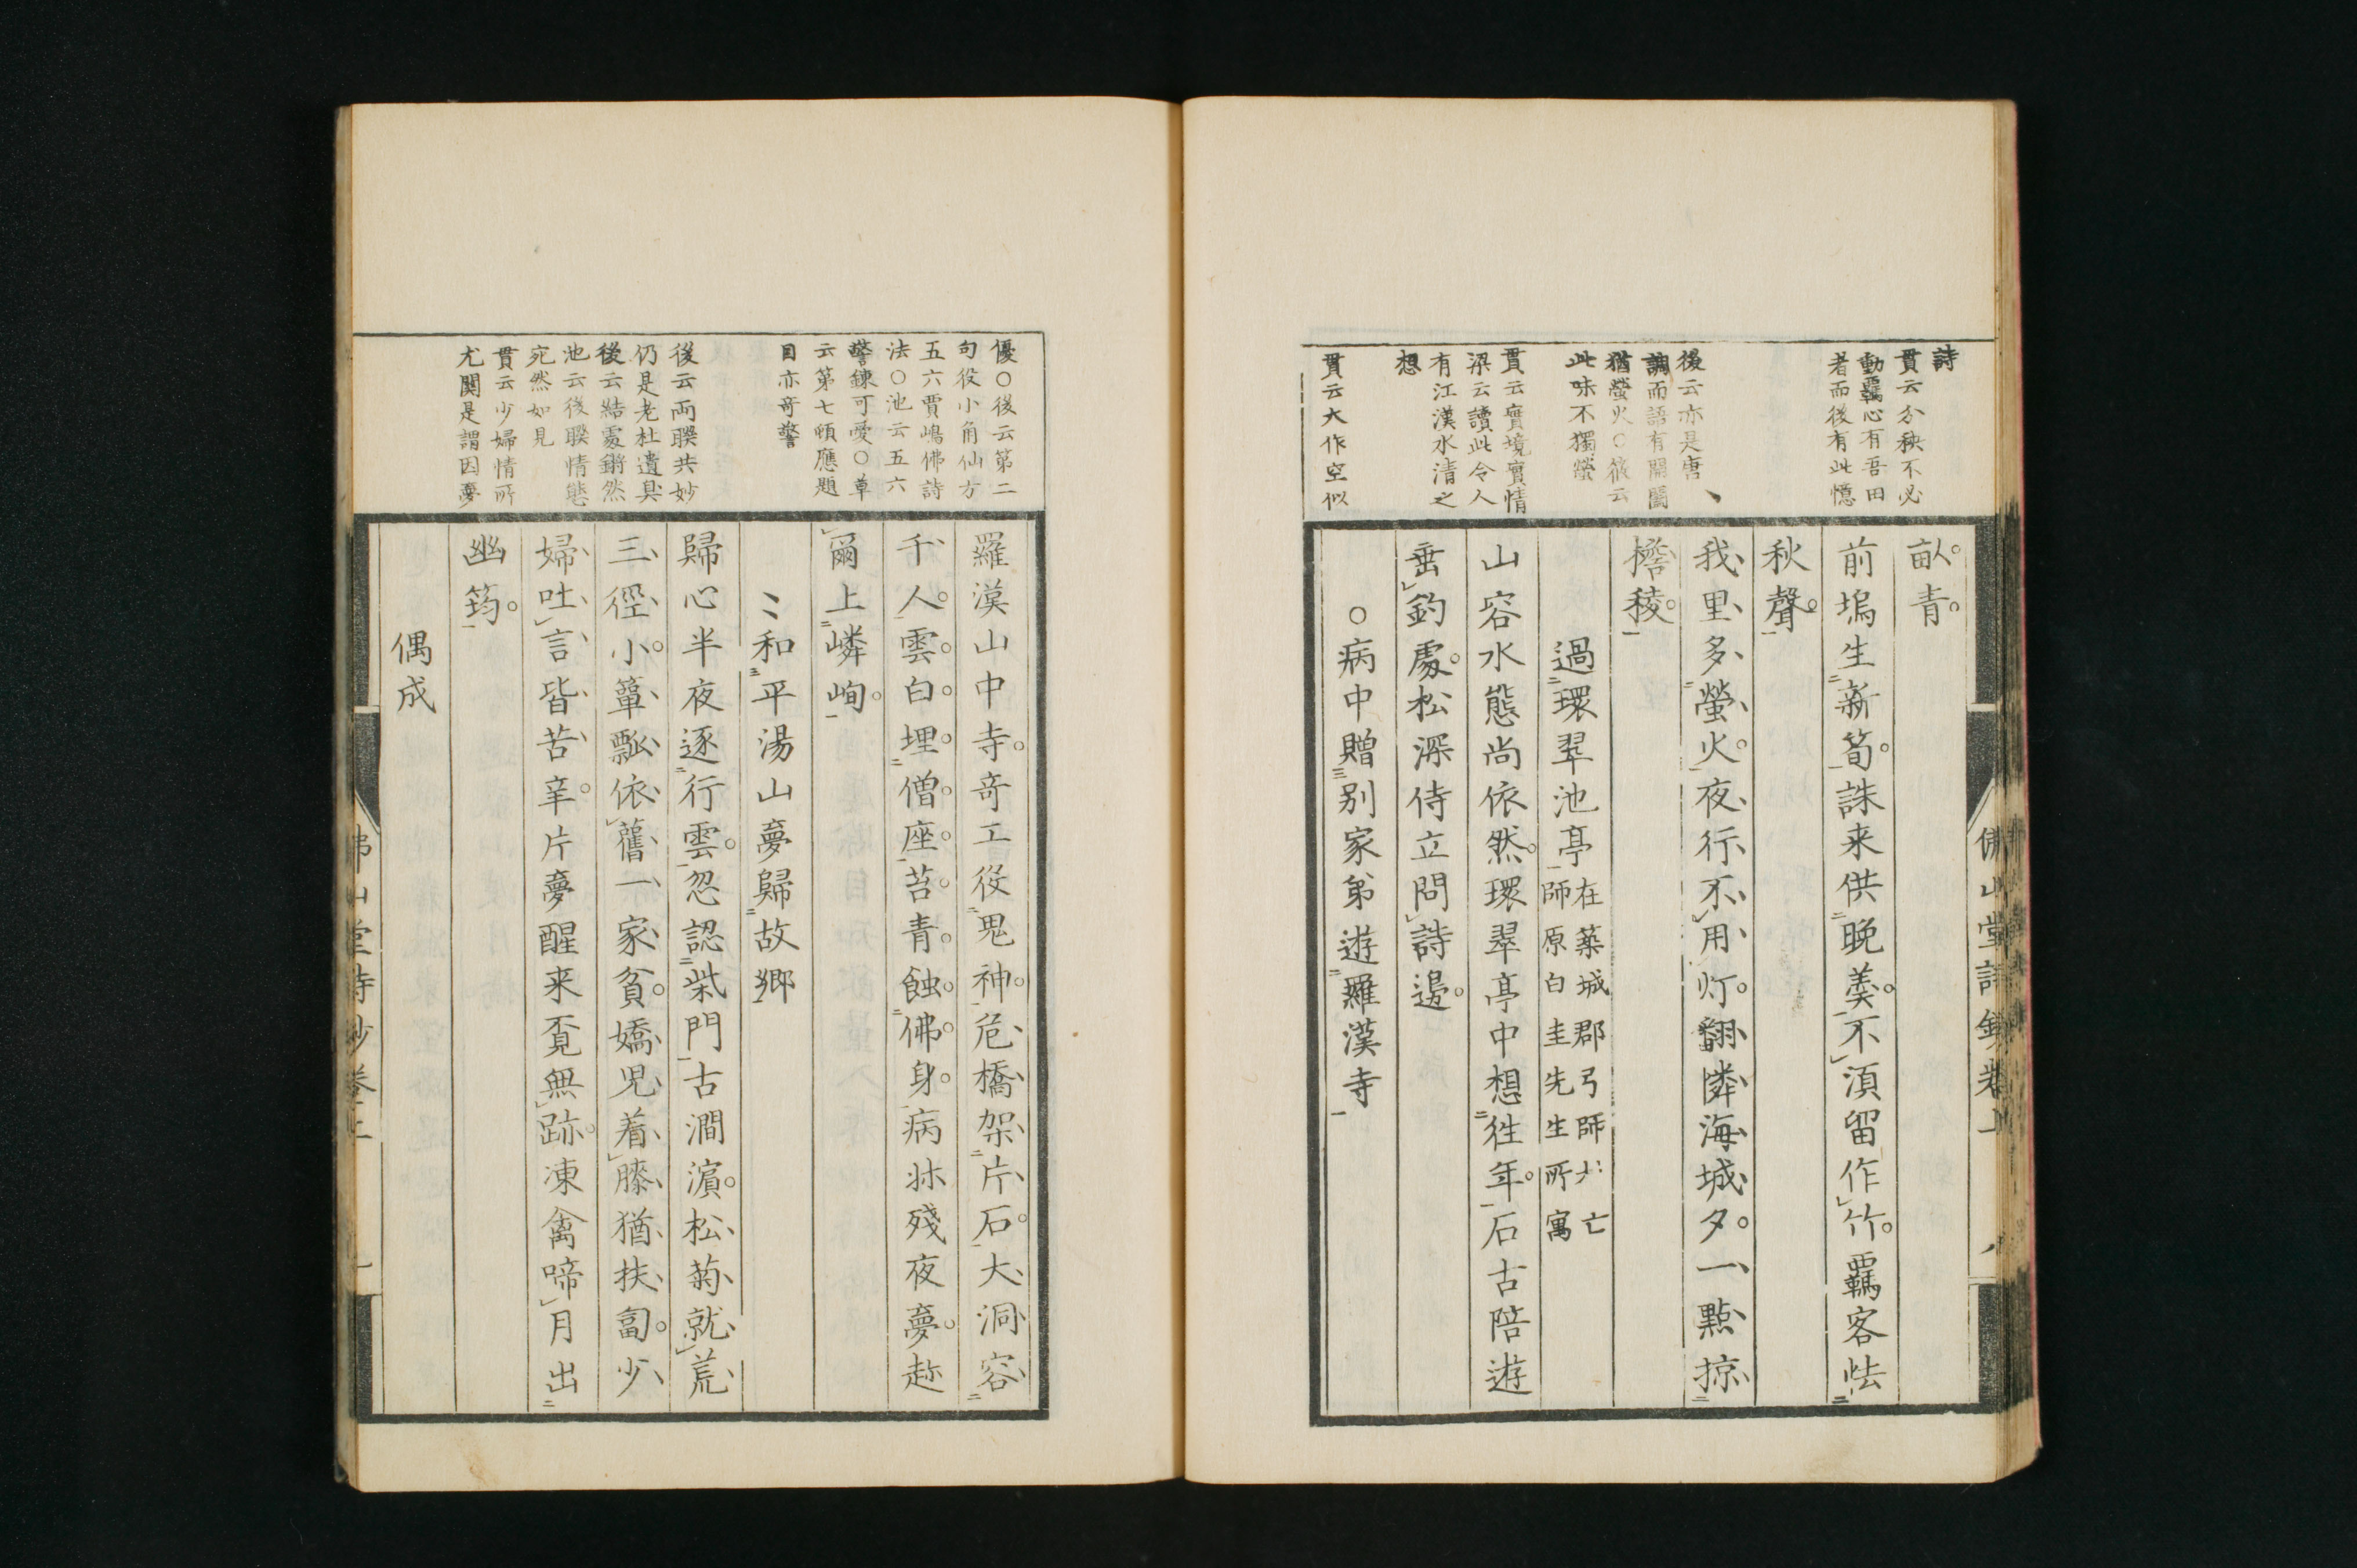 詩
貫云分秧不必
動羈心有吾田
者而後有此憶
後云亦是唐
調而語有開闔
猶螢火○筱云
此味不獨螢
貫云實境實情
梁云讀此令人
有江漢水清之
想
貫云大作空似
畝青
前塢生新筍誅来供晩羹不湏留作竹羈客怯
秋聲
我里多螢火夜行不用灯翻憐海城夕一點掠
檐稜
過環翠池亭在築城郡弓師邑亡
師原白圭先生所寓
山容水態尚依然環翠亭中想徃年石古陪遊
垂釣處松深侍立問詩邉
○病中贈别家弟遊羅漢寺
優○後云第二
句役小角仙方
五六賈嶋佛詩
法○池云五六
警錬可愛○草
云第七頓應題
目亦竒警
後云兩聯共妙
仍是老杜遺具
後云結處鏘然
池云後聯情態
宛然如見
貫云少婦情所
尤関是謂因夢
羅漢山中寺竒工役鬼神危橋架片石大洞容
千人雲白埋僧座苔青蝕佛身病牀殘夜夢趂
爾上嶙峋
和平湯山夢歸故郷
歸心半夜逐行雲忽認柴門古澗濵松菊就荒
三徑小簞瓢依舊一家貧嬌児着膝猶扶匐少
婦吐言皆苦辛片夢醒来覔無跡凍禽啼月出
幽筠
偶成
佛山堂詩鈔卷上